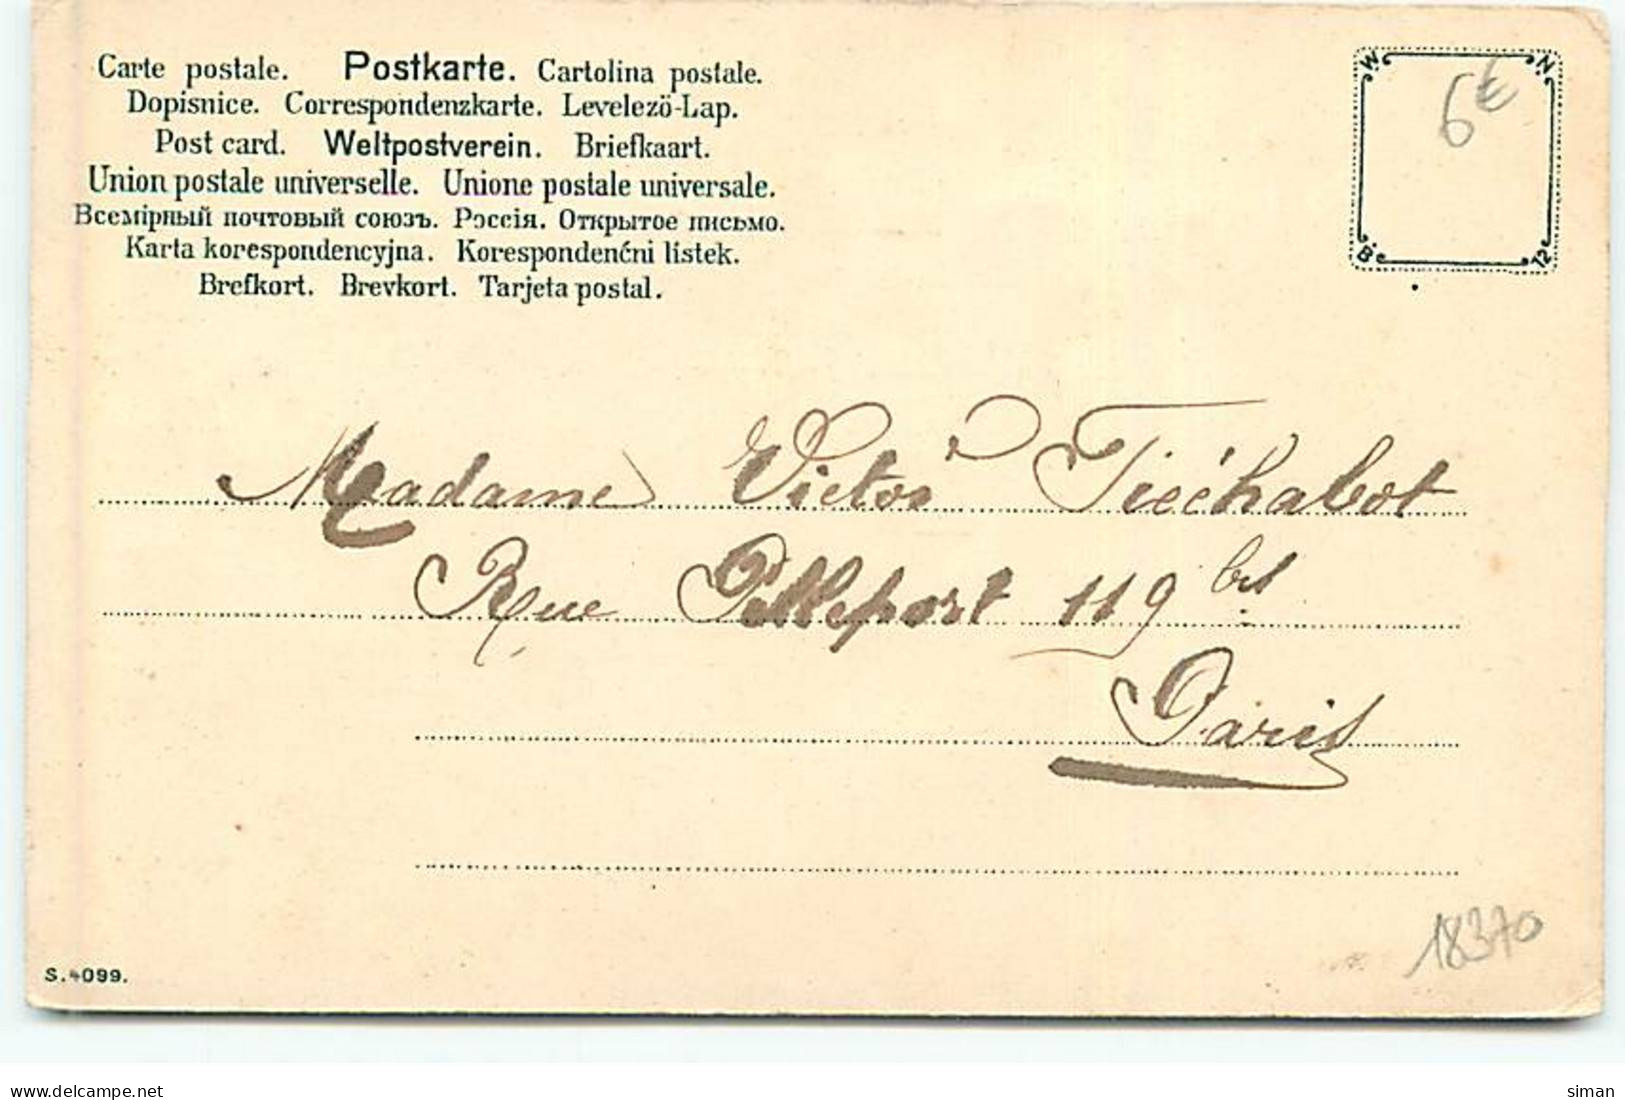 Carte postale. Postkarte. Cartolina postale.
Dopisnice. Correspondenzkarte. Levelező-Lap.
Post card. Weltpostverein. Briefkaart.
Union postale universelle. Unione postale universale.
Всемірный почтовый союзъ. Россія. Открытое письмо.
Karta korespondencyjna. Korespondenćni lístek.
Brefkort. Brevkort. Tarjeta postal.
W N
6€
B 12
Madame Victor Tiéchabot
Rue Pelleport 119 bis
Paris
18370
S. 4099.
delcampe.net
siman